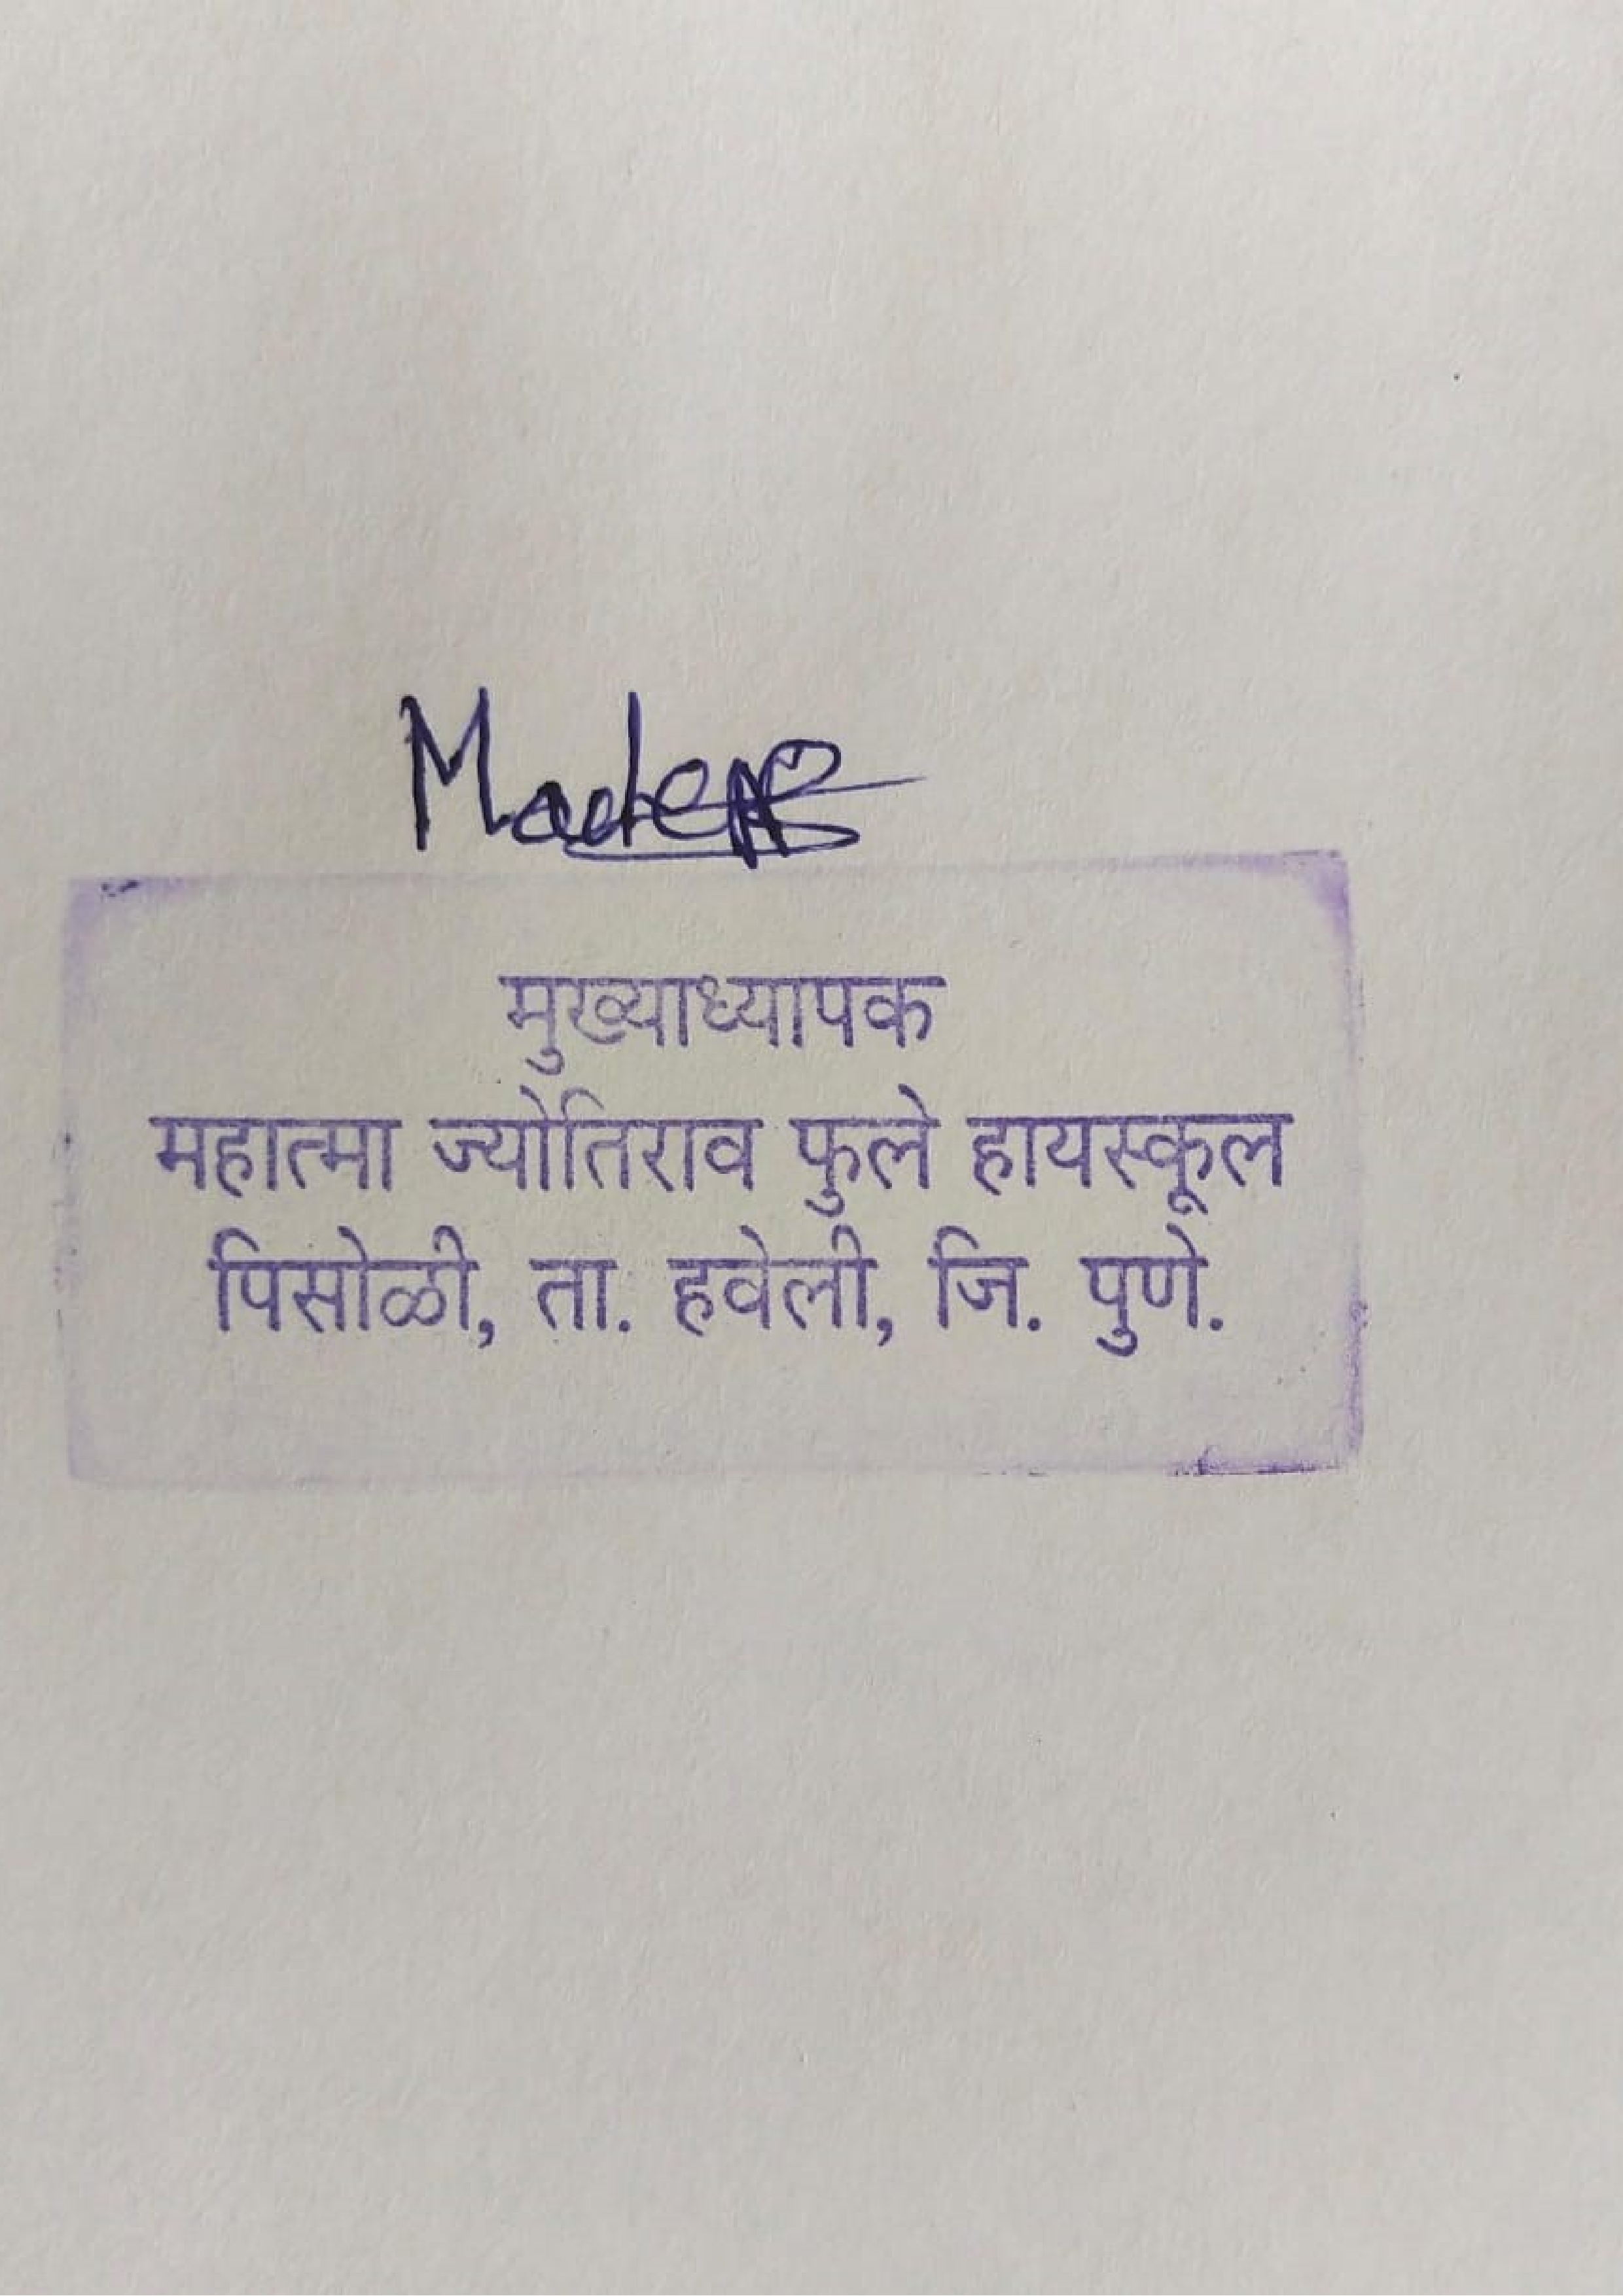 मुख्याध्यापक
महात्मा ज्योतिराव फुले हायस्कूल
पिसोळी, ता. हवेली, जि. पुणे.